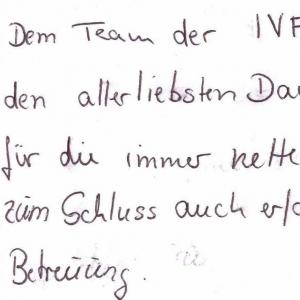 Dem Team der IVF
den allerliebsten Da
für die immer nette
zum Schluss auch erfo
Betreuung.